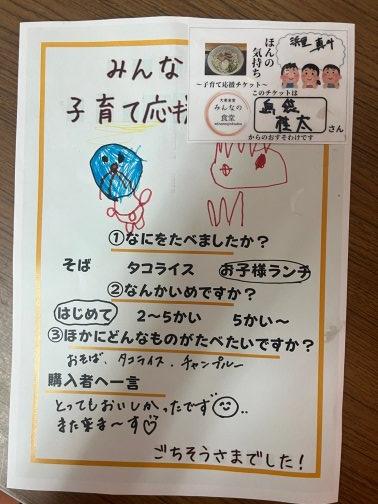 みんな
子育て応
ほんの
気持ち
～子育て応援チケット～
大衆食堂
みんなの
食堂
このチケットは
島袋
桂太
さん
からのおすそわけです
①なにをたべましたか？
そば タコライス お子様ランチ
②なんかいめですか？
はじめて 2～5かい 5かい～
③ほかにどんなものがたべたいですか？
おそば、タコライス、チャンプルー
購入者へ一言
とってもおいしかったです
また来ま～す♡
ごちそうさまでした！